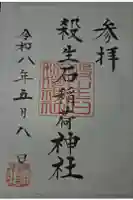 参拝
殺生石稲荷神社
令和八年五月八日